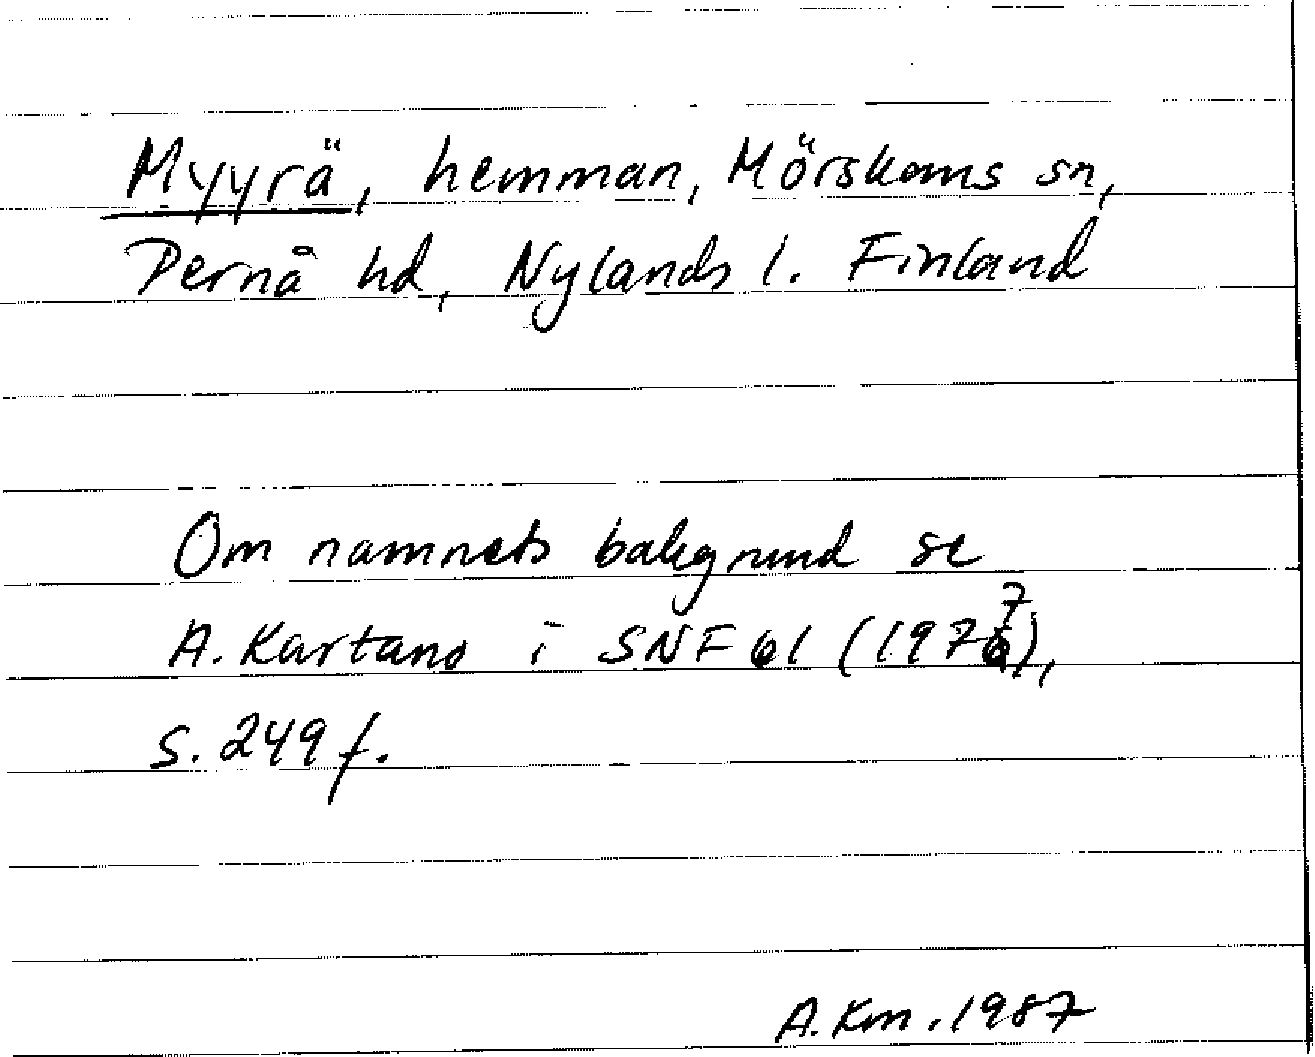 Myyrä, hemman, Mörskoms sn,
Pernå hd, Nylands l. Finland
Om namnets bakgrund se
A. Kartano i SNF 61 (1977),
s. 249 f.
A. Km. 1987